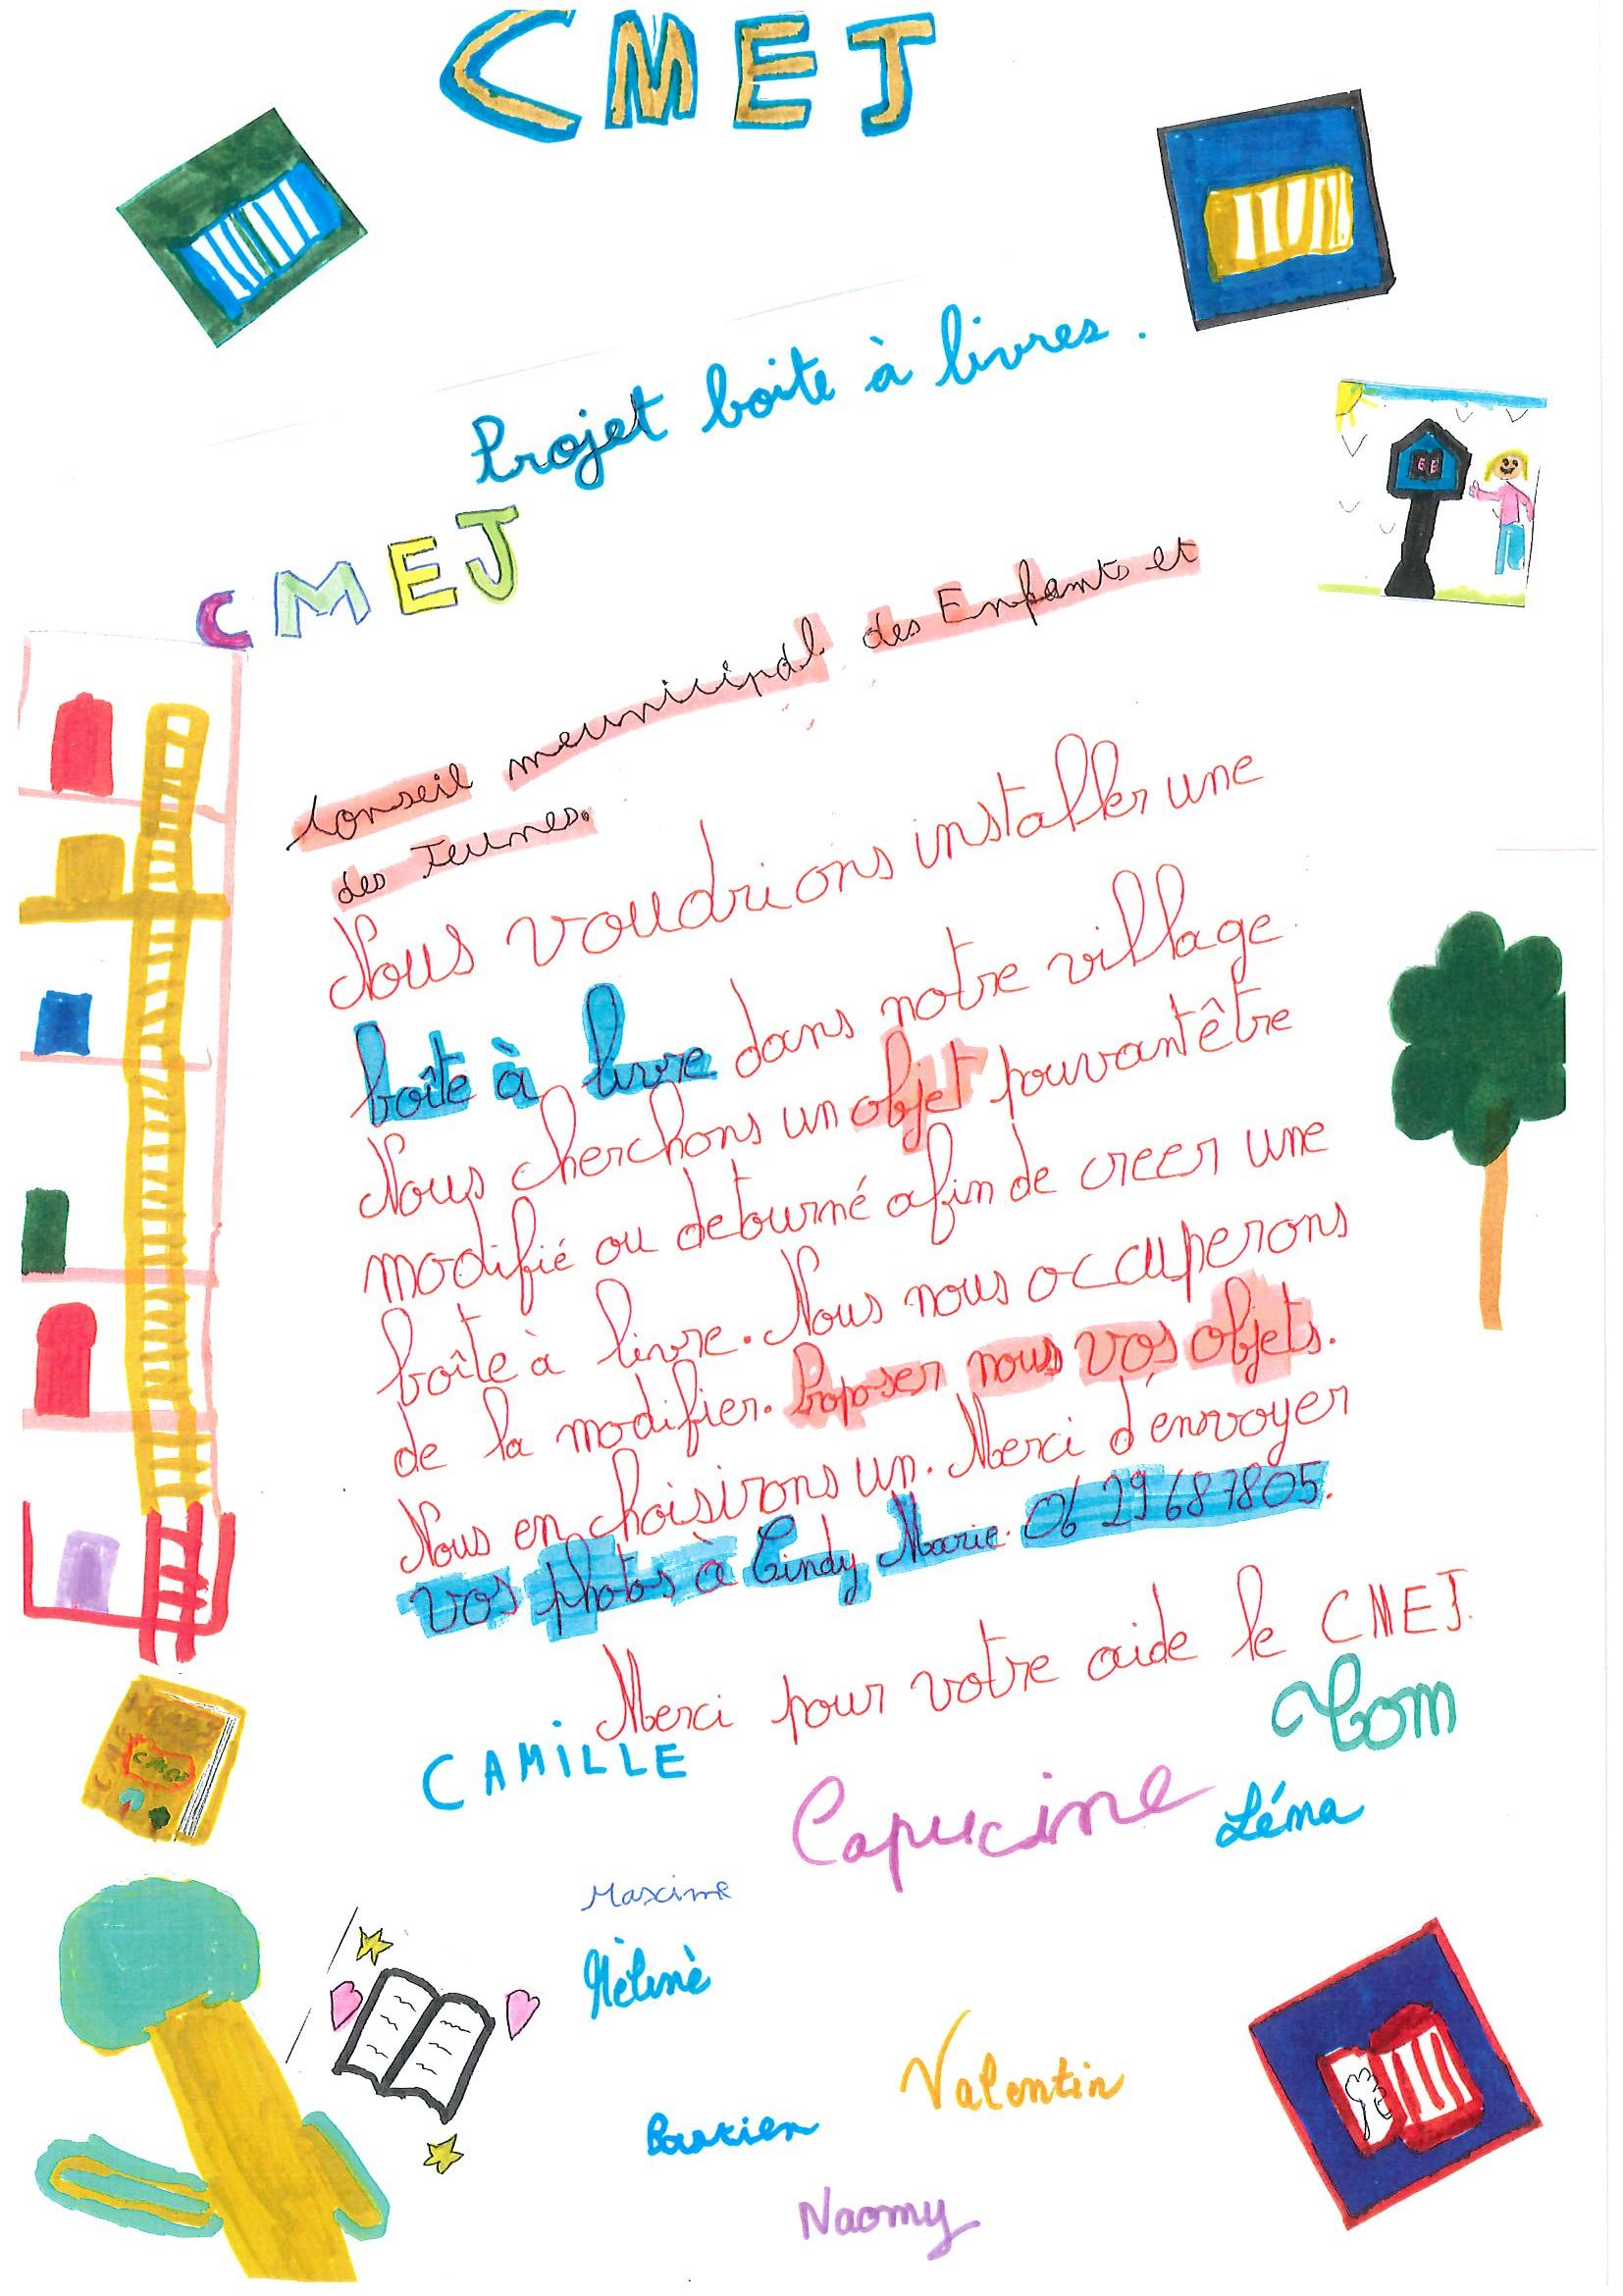 CMEJ
Projet boite à livres.
CMEJ
Conseil meunicipal des Enfants et
des Jeunes.
Nous voudrions installer une
boîte à livre dans notre village
Nous cherchons un objet pouvant être
modifié ou detourné afin de creer une
boîte à livre. Nous nous occuperons
de la modifier. Proposer nous vos objets.
Nous en choisirons un. Merci d'envoyer
vos photos à Cindy Marie. 06 29 68 78 05.
Merci pour votre aide le CMEJ.
Tom
CAMILLE
Capucine
Léna
Maxime
Hélène
Valentin
Bastien
Naomy